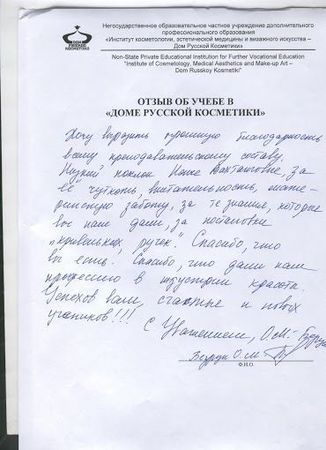 ДОМ РУССКОЙ КОСМЕТИКИ
Негосударственное образовательное частное учреждение дополнительного
профессионального образования
«Институт косметологии, эстетической медицины и визажного искусства –
Дом Русской Косметики»
Non-State Private Educational Institution for Further Vocational Education
"Institute of Cosmetology, Medical Aesthetics and Make-up Art –
Dom Russkoy Kosmetiki"
ОТЗЫВ ОБ УЧЕБЕ В
«ДОМЕ РУССКОЙ КОСМЕТИКИ»
Хочу выразить огромную благодарность
всему преподавательскому составу.
Низкий поклон Нане Вахтанговне, за
её чуткость, внимательность, мате-
ринскую заботу, за те знания, которые
вы нам дали, за постановки
"кривеньких ручек". Спасибо, что
вы есть! Спасибо, что дали нам
профессию в индустрии красота
Успехов вам, счастья и новых
учеников!!!
С Уважением, О.М.
О.М.
Ф.И.О.